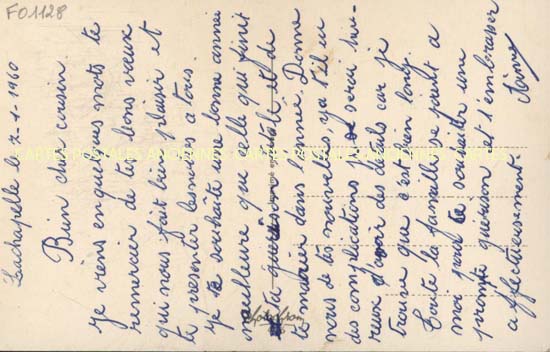 FO1128
Luchapelle le 7-1-1960
Bien cher cousin.
Je viens en quelques mots te
remercier de tes bons vœux
qui nous fait bien plaisir et
te présenter les notres a tous.
Je te souhaite une bonne année
meilleure que celle qui finit
ta guérison totale et de
te dans l'année. Donne
nous de tes nouvelles, ya t'il eu
des complications je serai heu-
reux d'avoir des détails car je
trouve que c'est bien long.
Toute la famille se joint a
moi pour te souhaiter un
prompte guérison et t'embrasser
affectueusement.
CARTES POSTALES ANCIENNES